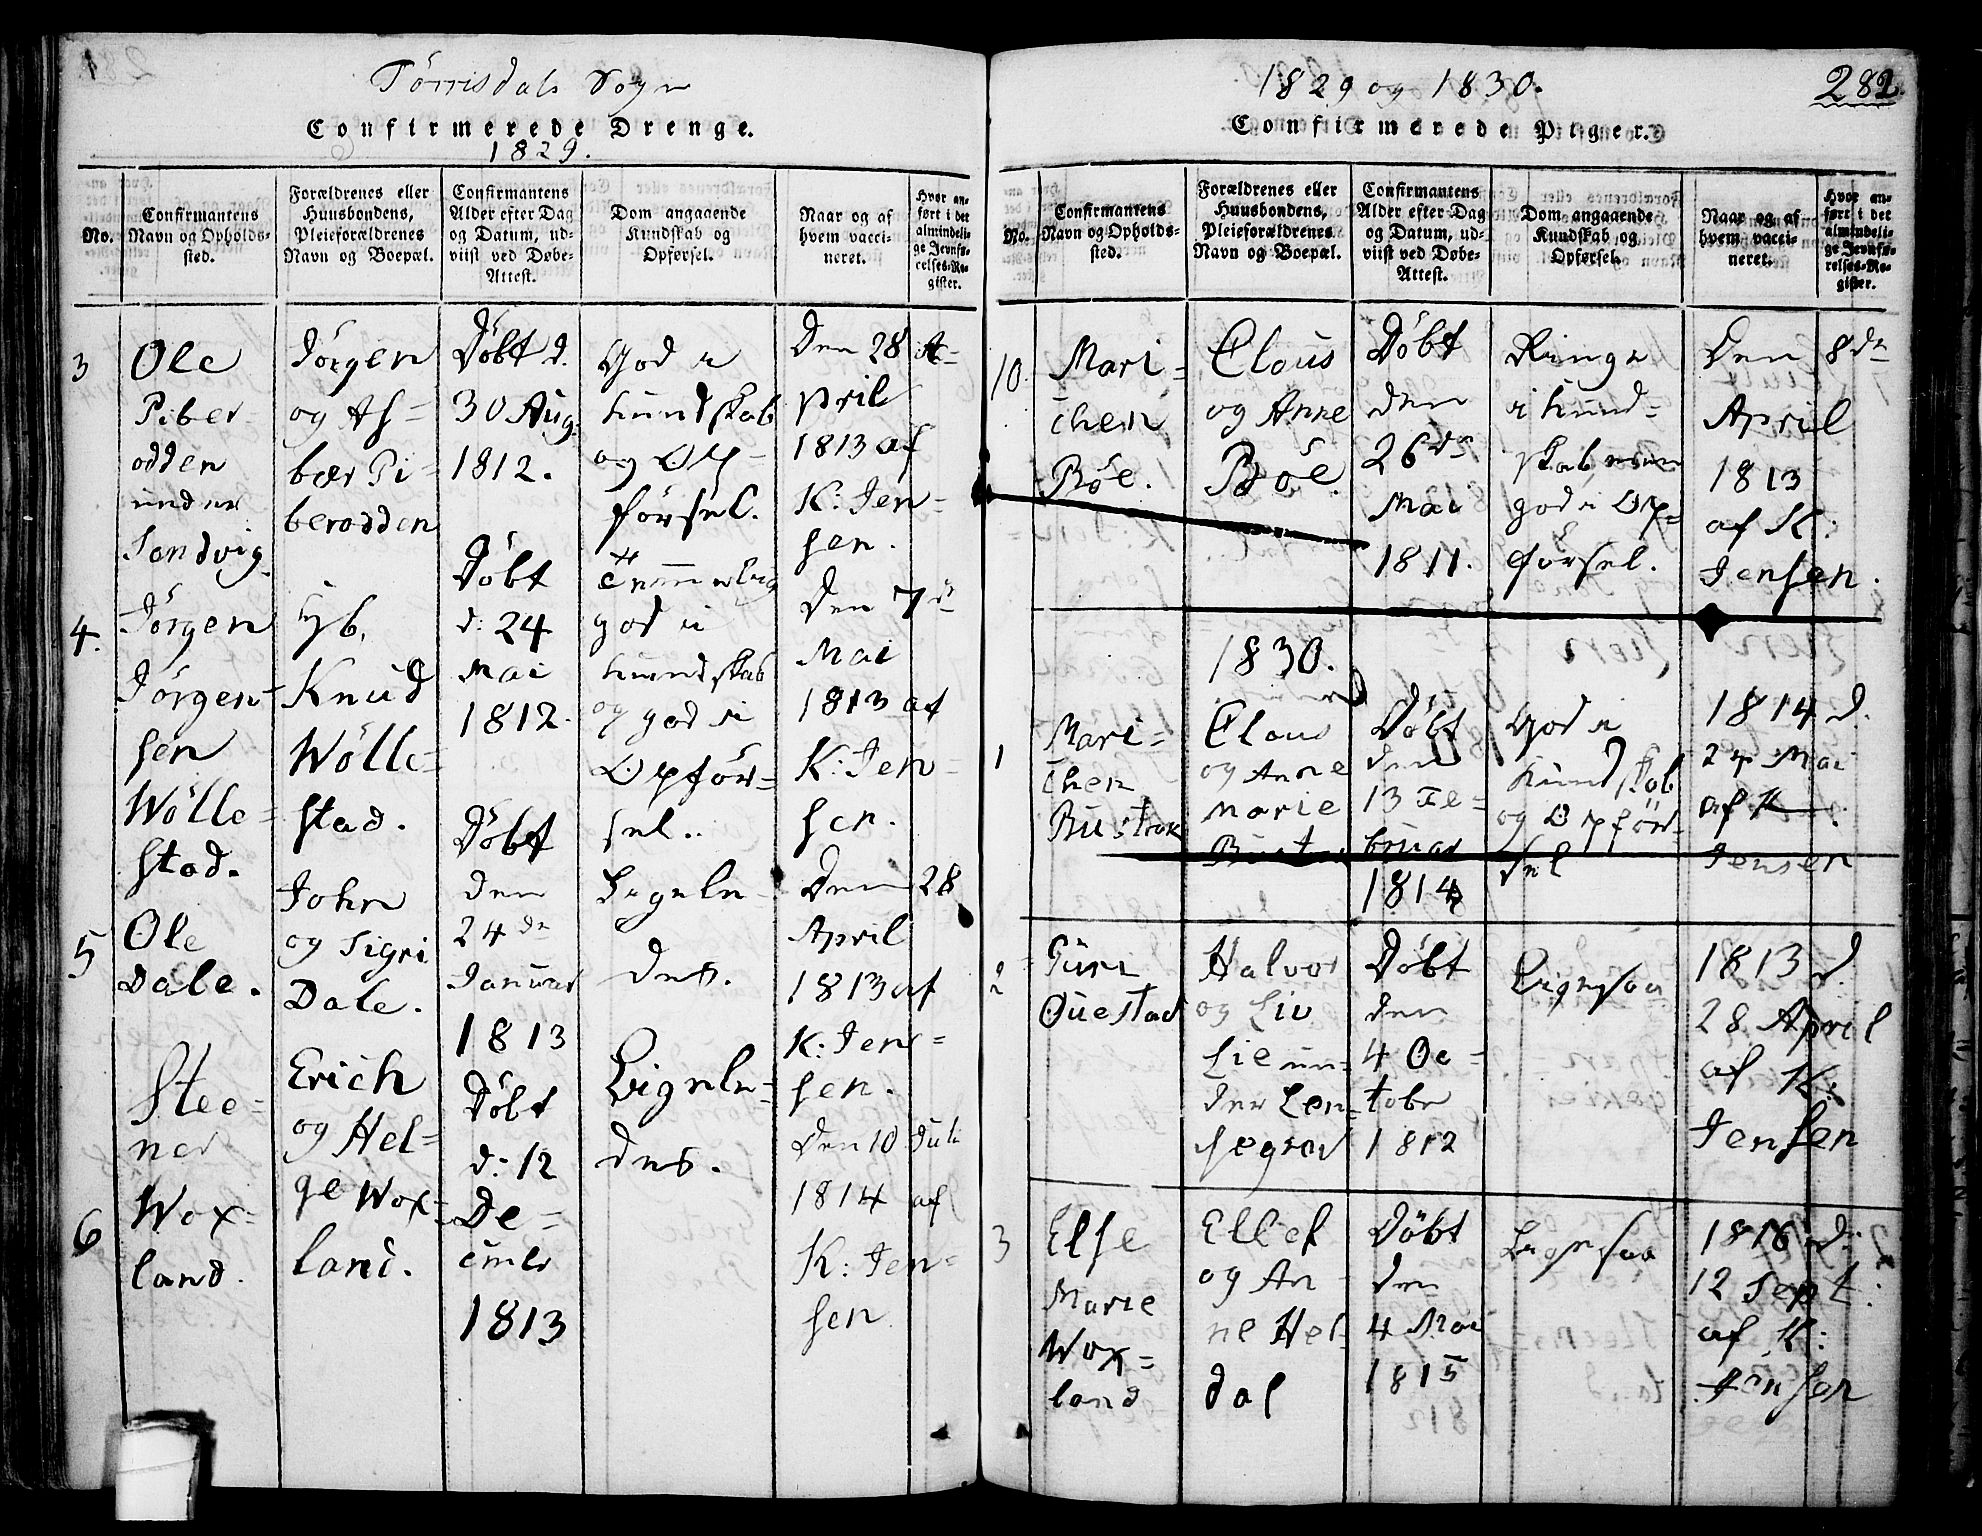 Törrisdals Sogn
Confirmerede Drenge.
1829.
No.
Confirmantens
Navn og Opholds-
sted.
Forældrenes eller
Huusbondens,
Pleieforældrenes
Navn og Boepæl.
Confirmantens
Alder efter Dag
og Datum, ud-
viist ved Døbe-
Attest.
Dom angaaende
Kundskab og
Opførsel.
Naar og af
hvem vacci-
neret.
Hvor an-
ført i det
almindeli-
ge Jevnfø-
relses-Re-
gister.
3
Ole
Piber-
odden
under
Sandvig.
Jörgen
og As=
bør Pi=
berodden
Döbt d.
30 Aug.
1812.
God i
kundskab
og Op-
försel.
Den 28 A-
pril
1813 af
K: Jen-
sen.
4.
Jörgen
Jörgen-
sen
Wölle=
stad.
Knud
Wölle=
stad.
Döbt
d: 24
Mai
1812.
god i
kundskab
og god i
Opför-
sel.
Den 7de
Mai
1813 af
K: Jen-
sen.
5
Ole
Dale.
John
og Sigri
Dale.
Döbt
den
24de
Januar
1813
Ligele-
des.
Den 28
April
1813 af
K: Jen=
sen.
6
Stee=
ner
Wox=
land.
Erich
og Hel=
ge Wox-
land.
Döbt
d: 12
De=
cmbr
1813
Ligele=
des.
Den 10 Juli
1814 af
K: Jen=
sen
1829 og 1830.
282.
Confirmerede Piger.
No.
Confirmantens
Navn og Opholds-
sted.
Forældrenes eller
Huusbondens,
Pleieforældrenes
Navn og Boepæl.
Confirmantens
Alder efter Dag
og Datum, ud-
viist ved Døbe-
Attest.
Dom angaaende
Kundskab og
Opførsel.
Naar og af
hvem vacci-
neret.
Hvor an-
ført i det
almindeli-
ge Jevnfø-
relses-Re-
gister.
10.
Mari=
chen
Böe.
Claus
og Anne
Böe.
Döbt
den
26de
Mai
1811.
Ringe
i kund=
skab men
god i Op=
försel.
Den 8de
April
1813
af K:
Jensen.
1830.
1
Mari=
chen
Bustrak
Claus
og Anne
Marie
Döbt
den
13 Fe=
bruar
1814
God i
kundskab
og Opför-
sel
1814 d.
Mai
af K.
Jensen
2
Guri
Questad
Halvor
og Liv
Lie un=
der Len-
segrav
Döbt
den
4 Oc=
tobr
1812
Ligesaa
1813 d.
28 April
af K:
Jensen
3
Else
Marie
Wox=
land
Ellef
og An-
ne Hel-
dal
Döbt
den
4 Mai
1815
Ligesaa
1816 d:
12 Sept:
af K:
Jensen